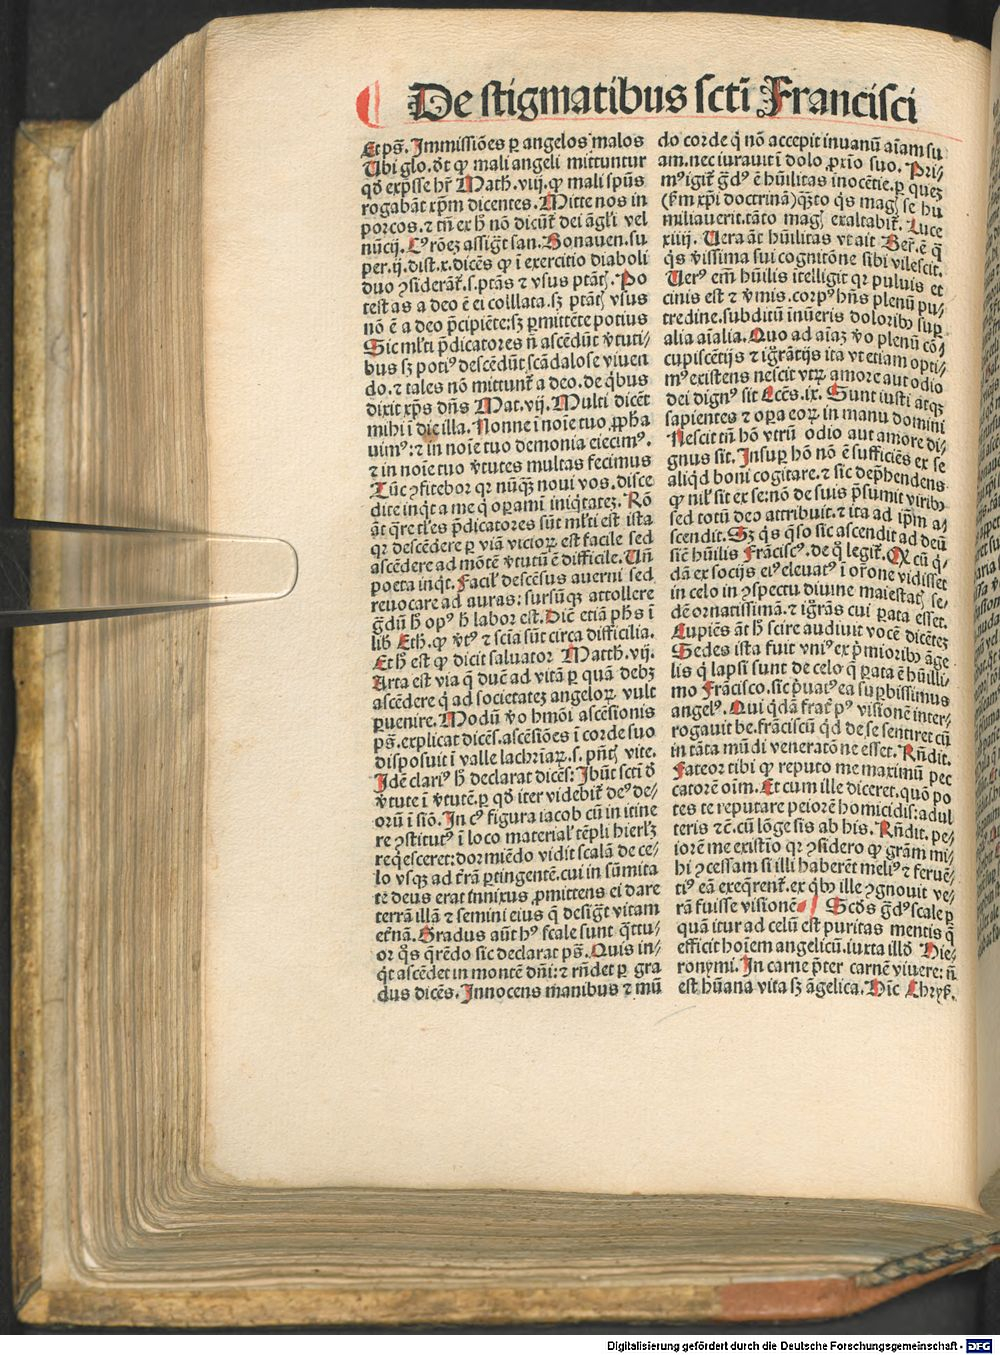 De stigmatibus sctī Francisci
Et pš. Immissiōes ꝑ angelos malos
Ubi glo. dt̄ ꝙ mali angeli mittuntur
qđ exp̄sse hr̄ Math. viij. ꝙ mali sp̄us
rogabāt xp̄m dicentes. Mitte nos in
porcos. ⁊ tn̄ ex h̄ nō dicūt̄ dei āgl'i vel
nūcij. Cꝰ rōez assigt̄ san. Bonauen. su
per. ij. dist. x. dicēs ꝙ ī exercitio diaboli
duo ꝯsiderāt̄. s. ptās ⁊ vsus ptāt. Po
testas a deo ē ei collata. sꝫ ptāt vsus
nō ē a deo p̄cipiēte: sꝫ ꝑmittēte potius
Sic ml'ti p̄dicatores n̄ ascēdūt v̄tuti/
bus sꝫ potiꝰ descēdūt scādalose viuen
do. ⁊ tales nō mittunt̄ a deo. de q̄bus
dixit xp̄s dn̄s Mat. vij. Multi dicēt
mihi ī die illa. Nonne ī noīe tuo ꝓpha
uimꝰ: ⁊ in noīe tuo demonia eiecimꝰ.
⁊ in noīe tuo v̄tutes multas fecimus
Tūc ꝯfitebor qr nūqꝫ noui vos. disce
dite inq̄t a me q̄ oꝑami iniq̄tatez. Rō
āt q̄re tl'es p̄dicatores sūt ml'ti est ista
qr descēdere ꝑ viā vicioꝝ est facile sed
ascēdere ad mōtē v̄tutū ē difficile. Un̄
poeta inq̄t. Facil' descēsus auerni sed
reuocare ad auras: sursūqꝫ attollere
ḡdū h̄ opꝰ h̄ labor est. Dic̄ etiā ph̄s ī
lib Eth. ꝙ v̄tꝰ ⁊ scīa sūt circa difficilia.
Et h̄ est ꝙ dicit saluator Matth. vij.
Arta est via q̄ duc̄ ad vitā ꝑ quā debꝫ
ascēdere q̄ ad societatez angeloꝝ vult
ꝑuenire. Modū v̄o hmōi ascēsionis
pš. explicat dicēs. ascēsiōes ī corde suo
disposuit ī valle lachrīaꝝ. s. pn̄t vite.
Idē clariꝰ h̄ declarat dicēs: Ibūt scti đ
v̄tute ī v̄tutē. ꝑ qđ iter videbit̄ deꝰ de/
orū ī siō. In cꝰ figura iacob cū in itine
re ꝯstitutꝰ ī loco material' tēpli hierl'ꝫ
req̄esceret: dormiēdo vidit scalā de ce/
lo vsqꝫ ad t̄rā ꝑtingentē. cui in sūmita
te deus erat innixus ꝓmittens ei dare
terrā illā ⁊ semini eius q̄ desigt̄ vitam
et̄nā. Gradus aūt hꝰ scale sunt q̄ttu/
or q̄s q̄rēdo sic declarat pš. Quis in/
q̄t ascēdet in montē dn̄i: ⁊ rn̄det ꝑ gra
dus dicēs. Innocens manibus ⁊ mū
do corde q̄ nō accepit in vanū aīam su
am. nec iurauit ī dolo ꝓxīo suo. Pri/
mꝰ igit̄ ḡdꝰ ē hūilitas inocētie. ꝑ quez
(ẜm xp̄i doctrinā) q̄sto q̄s mag se hu
miliauerit. tāto mag exaltabit̄. Luce
xiiij. Uera āt hūilitas vt ait Ber. ē q̄
q̄s v̄issima sui cognitōne sibi vilescit.
Uerꝰ em̄ hūilis ītelligit qr puluis et
cinis est ⁊ v̄mis. corpꝰ hn̄s plenū pu/
tredine. subditū inūeris doloribꝰ suꝑ
alia aīalia. Quo ad aīaꝫ v̄o plenū cō/
cupiscētijs ⁊ ig̅rātijs ita vt etiam opti/
mꝰ existens nescit vtꝝ amore aut odio
dei dignꝰ sit Eccēs. ix. Sunt iusti atqꝫ
sapientes ⁊ oꝑa eoꝝ in manu domini
Nescit tn̄ hō vtrū odio aut amore di/
gnus sit. Insuꝑ hō nō ē sufficiēs ex se
aliq̄d boni cogitare. ⁊ sic dep̄hendens
ꝙ nil' sit ex se: nō de suis p̄sumit viribꝰ
sed totū deo attribuit. ⁊ ita ad ip̄m a/
scendit. Sꝫ q̄s q̄so sic ascendit ad deū
sic̄ hūilis Frāciscꝰ. de q̄ legit̄. Q cū q̄/
dā ex socijs eiꝰ eleuatꝰ ī oꝛ̄one vidisset
in celo in ꝯspectu diuine maiestat se/
dē ornatissimā. ⁊ ig̅rās cui ꝑata esset.
Cupiēs āt h̄ scire audiuit vocē dicētez
Sedes ista fuit vniꝰ ex p̄mioribꝰ āge
lis q̄ lapsi sunt de celo q̄ ꝑata ē hūilli/
mo Frācisco. sic p̄uatꝰ ea suꝑbissimus
angelꝰ. Qui q̄dā frat̄ pꝰ visionē inter/
rogauit be. frāciscū q̄d de se sentiret cū
in tāta mūdi veneratōne esset. Rn̄dit.
Fateor tibi ꝙ reputo me maximū pec
catorē oīm. Et cum ille diceret. quō po
tes te reputare peiorē homicidis: adul
teris ⁊c̄. cū lōge sis ab his. Rn̄dit. pe/
iorē me existīo qr ꝯsidero ꝙ grām mi/
hi ꝯcessam si illi haberēt meliꝰ ⁊ feruē/
tiꝰ eā exeq̄rent̄. ex q̄bꝰ ille ꝯgnouit ve/
rā fuisse visionē. Scđs ḡdꝰ scale ꝑ
quā itur ad celū est puritas mentis q̄
efficit hoīem angelicū. iuxta illđ Hie/
ronymi. In carne p̄ter carnē viuere: n̄
est hūana vita sꝫ āgelica. Hīc Chrys.
Digitalisierung gefördert durch die Deutsche Forschungsgemeinschaft - DFG